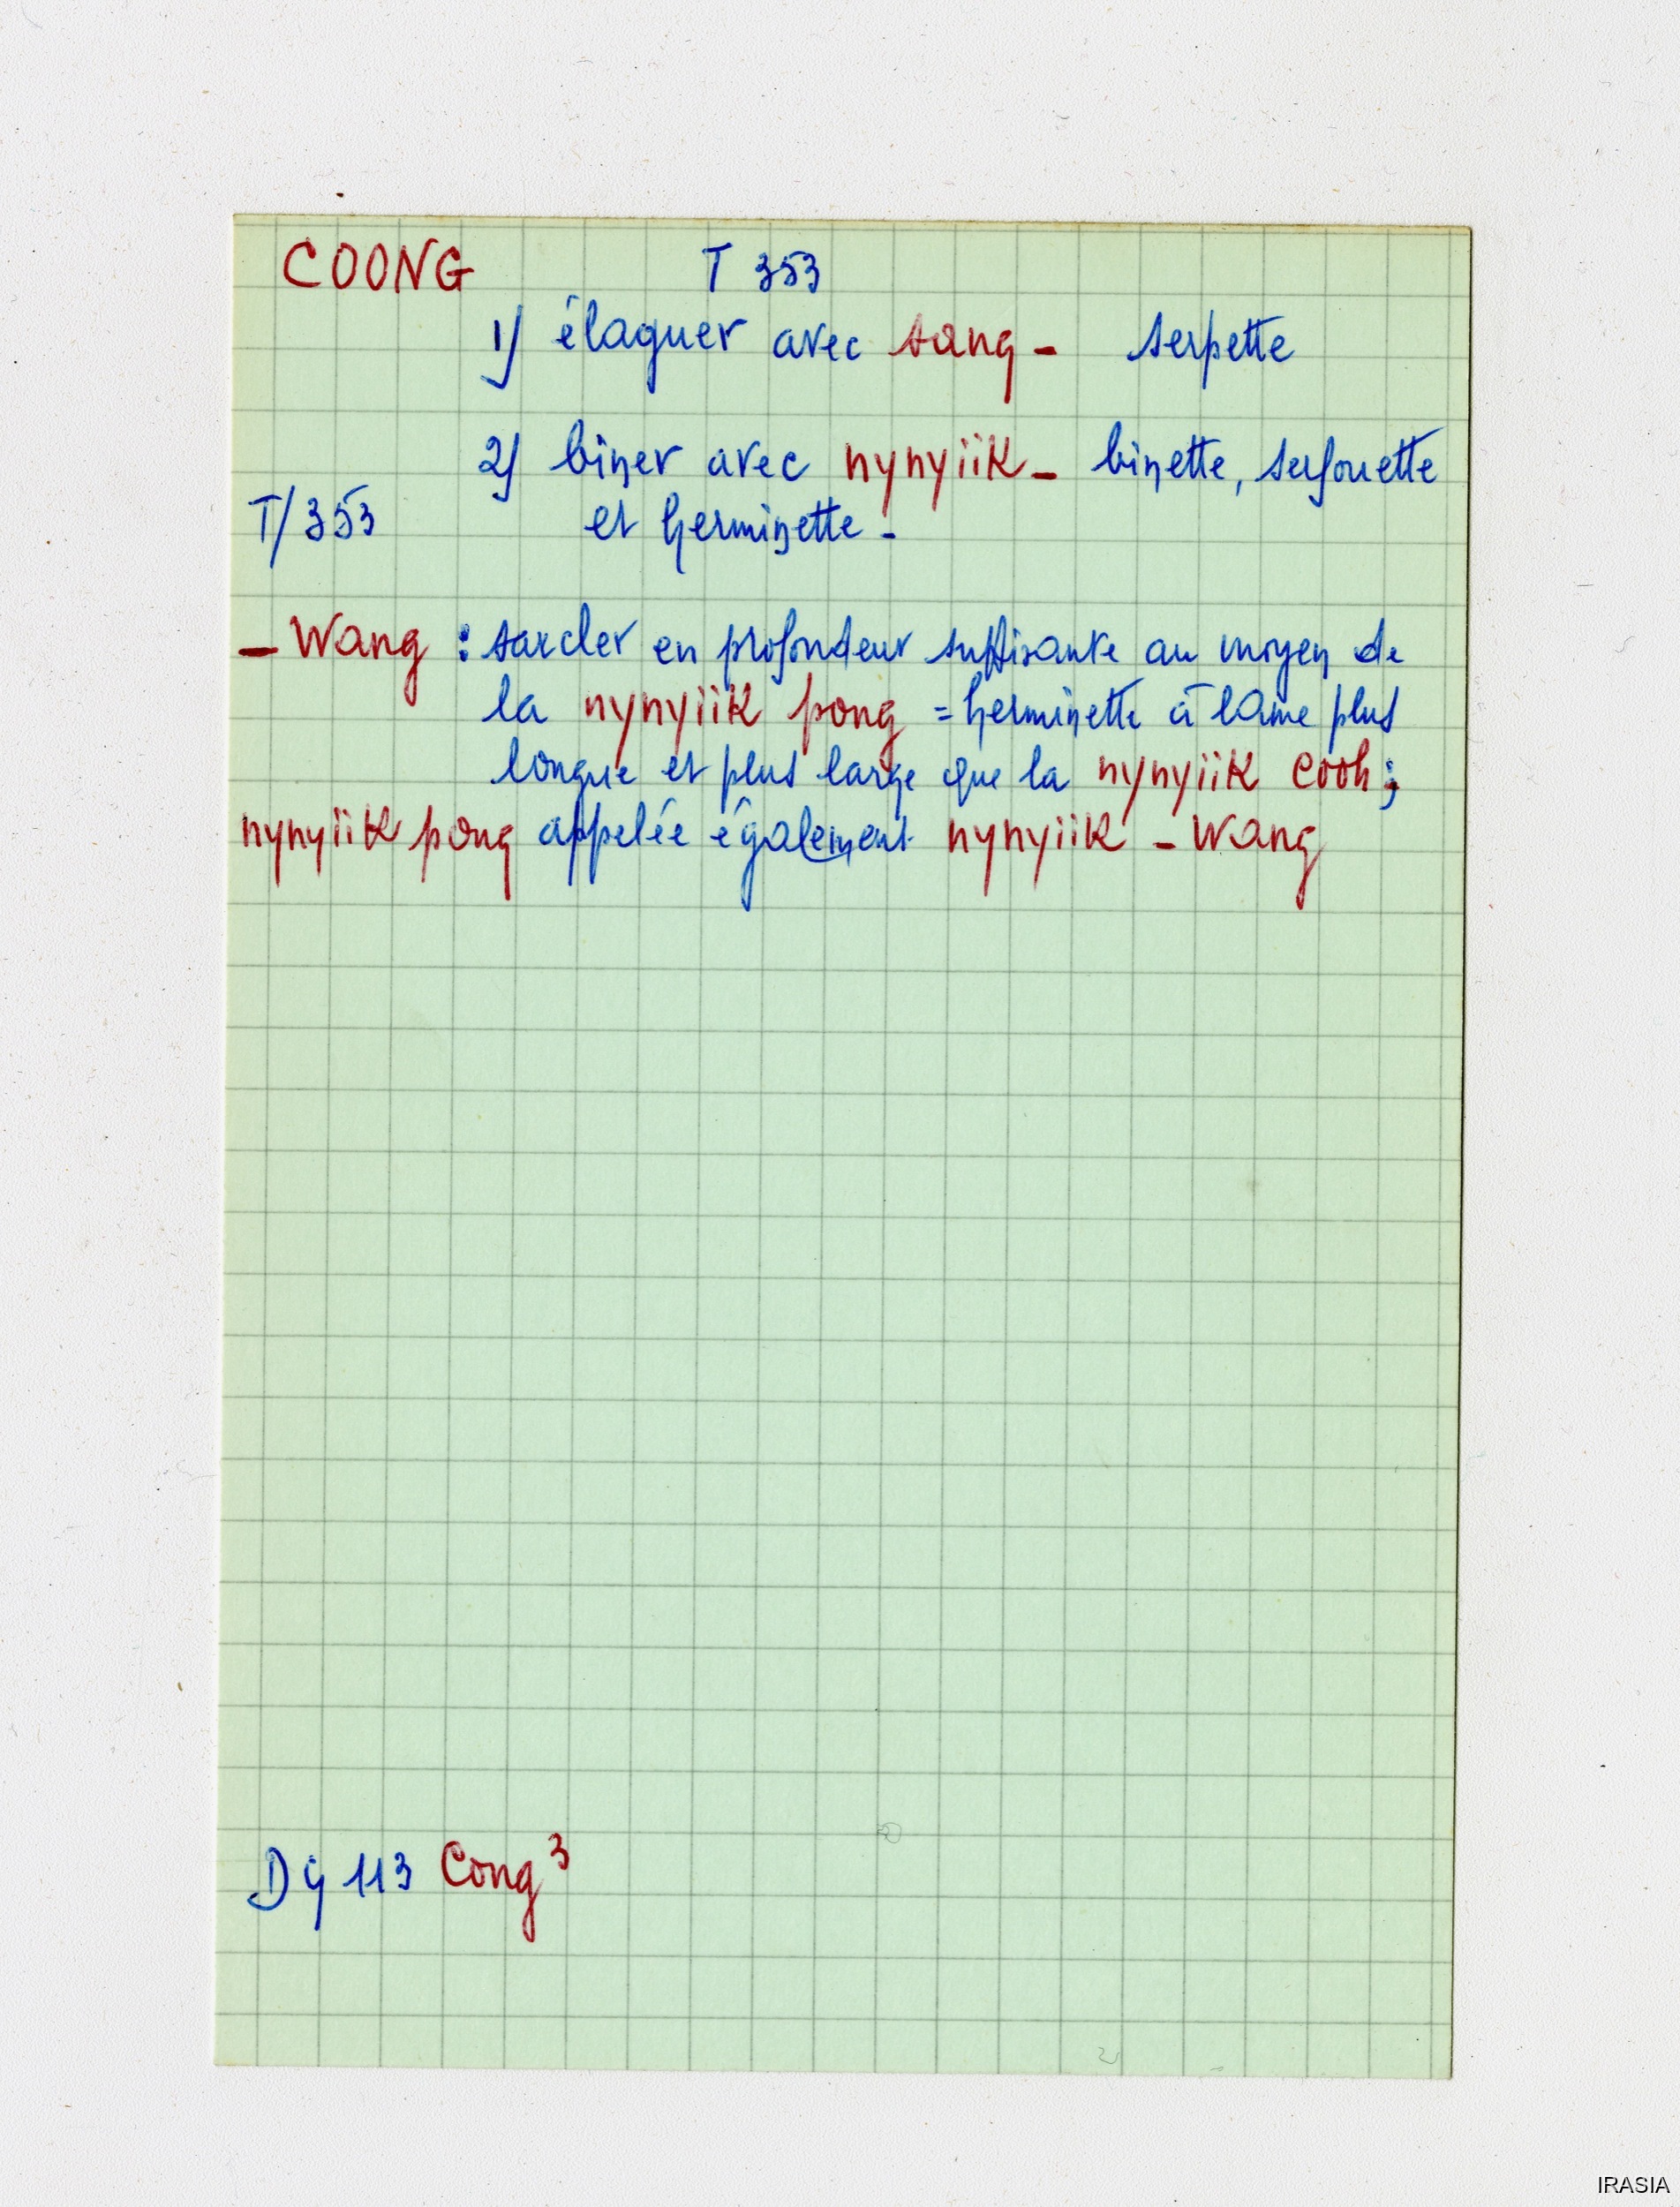 COONG T 353
1) élaguer avec sang - serpette
2) biner avec nynyiik - binette, serfouette
T/353 et herminette -
- Wang : sarcler en profondeur suffisante au moyen de
la nynyiik pong = herminette à lame plus
longue et plus large que la nynyiik cooh ;
nynyiik pong appelée également nynyiik - Wang
Dy 113 Cong³
IRASIA